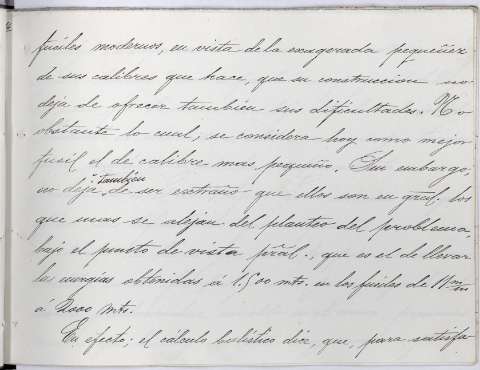 fusiles modernos, en vista de la exagerada pequeñez
de sus calibres que hace, que su construccion no
deja de ofrecer tambien sus dificultades. No
obstante lo cual, se considera hoy como mejor
fusil el de calibre mas pequeño. Sin embargo,
tambien
no deja de ser extraño que ellos son en gral. los
que mas se alejan del planteo del problema,
bajo el punto de vista pñal., que es el de llevar
las energías obtenidas á 1.500 mts. en los fusiles de 11 mm
á 2000 mts.
En efecto; el cálculo balístico dice, que, para satisfa-